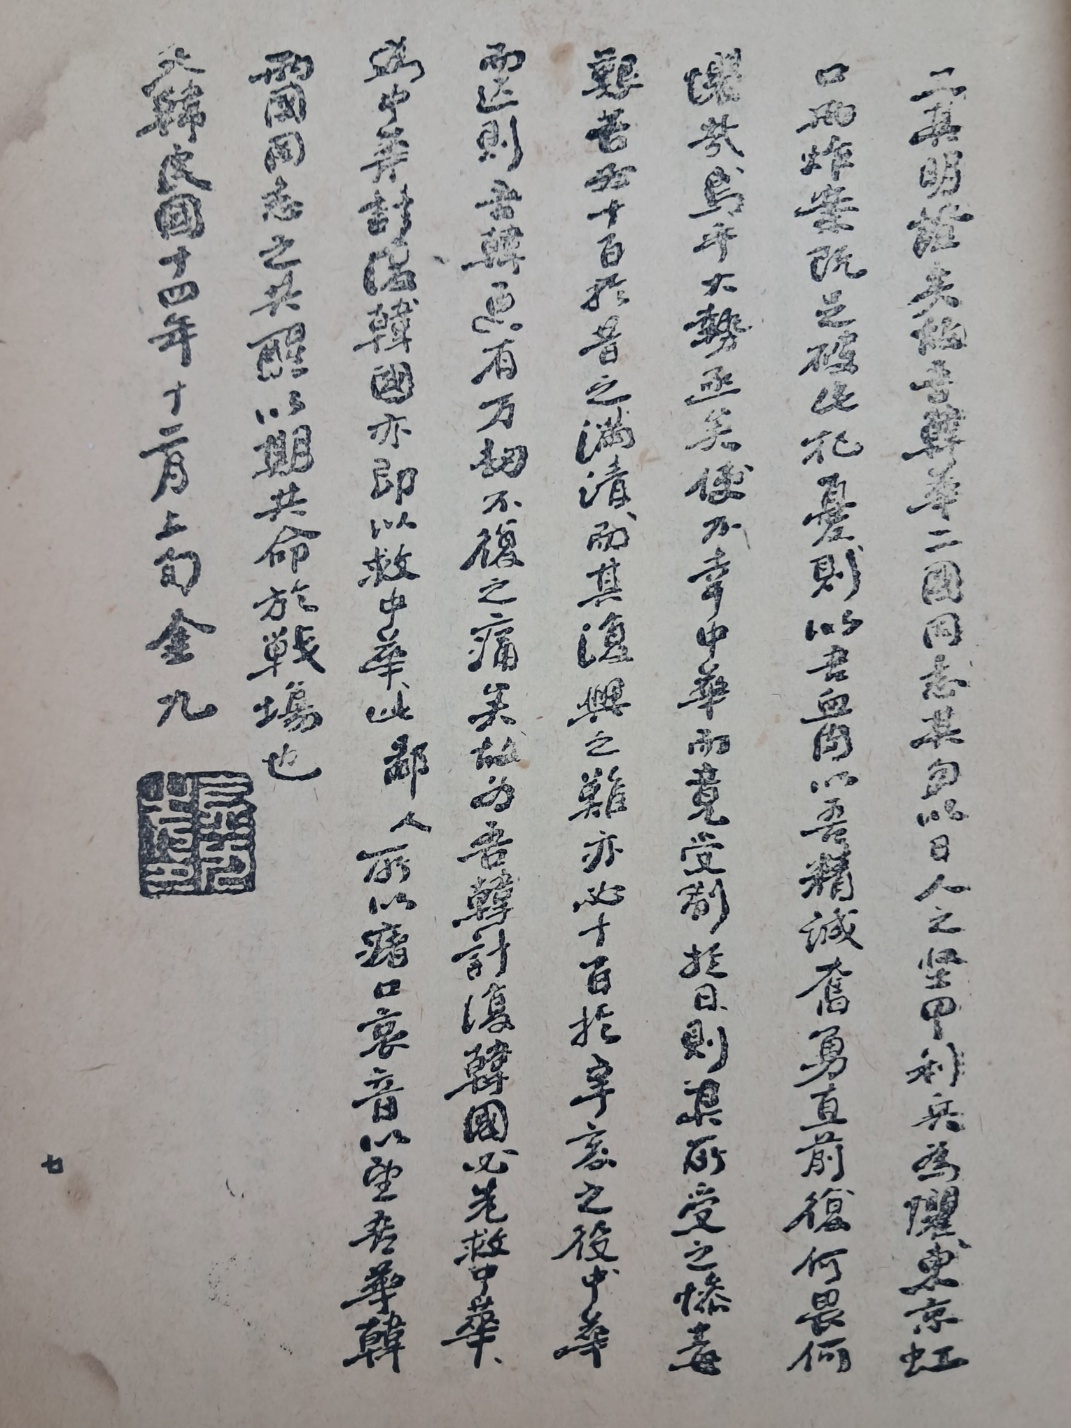 二其明證矣伯吾韓華二國同志其勿以日人之堅甲利兵為懼東京虹
口両炸案既足破此扎憂則以吾血肉以吾精誠奮勇直前復何畏何
懼哉烏乎大勢亟矣使不幸中華而竟受制於日則其所受之慘毒
艱苦必十百於昔之满清而其復興之難亦必十百於辛亥之役中華
而亡則吾韓真有万劫不復之痛矣故为吾韓計復韓國必先救中華
為中華計復韓國亦即以救中華此鄙人所以瘏口哀音以望吾華韓
両國同志之共醒以期共命於戰場也
大韓民國十四年十二月上旬金九
七